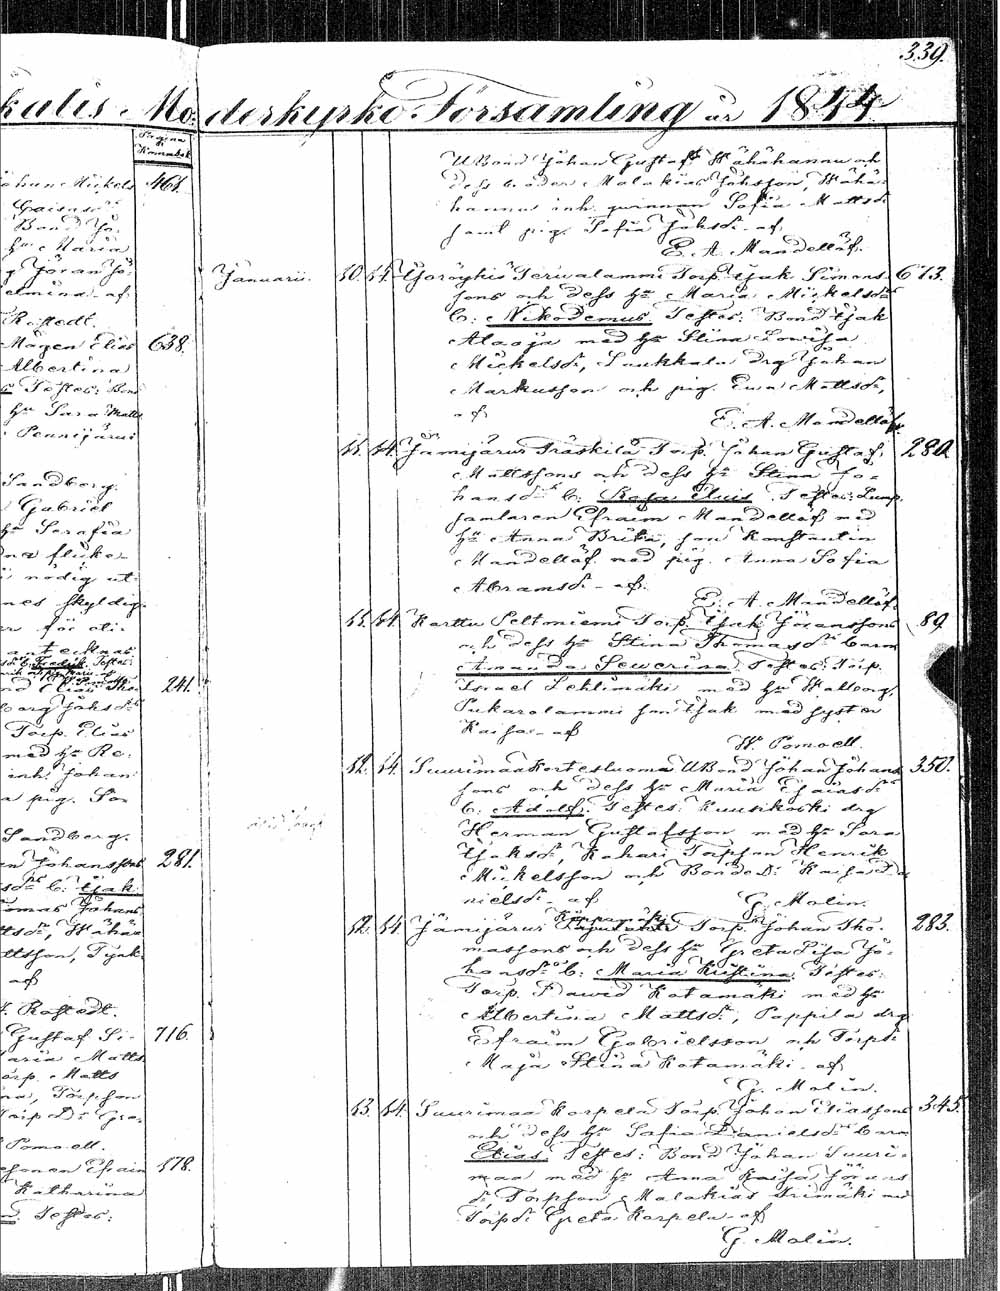 339.
kalis Mo:derkyrko Församling år 1844
Pagina
Kommbok
Johan Mickels 461.
Bond Jo-
hu Maria
g Jöran Jö-
elmina - af
Mågen Elias 638.
Albertina
Testes: Bon
hu Sara Matts
Pennijärvi
Sandberg.
Gabriel
hu Serafia
dna flicko-
i nödig ut-
nes skyldig-
er för oli-
antecknas
Fredrik Testes:
nd Elias Tho 241.
Torp. Elias
med hu Re-
inh Johan
a pig. So
Sandberg.
en Johansson 281.
C: Isak
omas Johans
ttsdr, Wähä
ttsson, Tjuk
af
Rostedt.
Gustaf Si- 716.
aria Matts
orp. Matts
na, Torpson
Torp D: Gre-
Pomoell.
sonen Efraim 178.
Katharina
Testes:
UBond Johan Gustafs Wähähannu och
dess broder Malakias Johsson, Wähä-
hannus inh. qwinnan Sofia Mattsdr
saml pig. Sofia Johsdr - af
E. A. Mandellöf.
Januarii. 10. 14. Goröykis Teriwalammi Torp. Isak Simons- 673.
sons och dess hu Maria Mickelsdrs
C: Nikodemus. Testes: Bond Isak
Alaoja med hu Stina Lowisa
Mickelsdr, Luukkala drg Johan
Markusson och pig. Ewa Mattsdr,
- af
E. A. Mandellöf.
11. 14. Jämijärwi Träskilä Torp. Johan Gustaf 280.
Mattssons och dess hu Stina Jo-
hansdrs C: Rosa Eluis Testes: Lump
samlaren Efraim Mandellöf med
hu Anna Brita, son Konstantin
Mandellöf med pig. Anna Sofia
Abramsdr - af.
E. A. Mandellöf.
11. 14. Karttu Peltoniemi Torp. Isak Jöranssons 89
och dess hu Stina Thomasdrs barn
Amanda Sewerina, Testes: Torp.
Israel Lehtimäki med hu Walborg,
Pukaralammi son Isak med syster
Kaisa - af
W. Pomoell.
12. 14. Suurimaa Kortesluoma UBond Johan Johans 350.
sons och dess hu Maria Esaiasdrs
C: Adolf. Testes: Kuusikoski drg
Herman Gustafsson med hu Sara
Isaksdr, Kohari Torpson Henrik
Mickelsson och Bonde D: Kaisa Da
nielsdr - af
G. Malin.
12. 14. Jämijärwi Torp. Johan Tho- 283.
massons och dess hu Greta Lisa Jo-
hansdrs C: Maria Kristina Testes:
Torp. Dawid Katamäki med hu
Albertina Mattsdr, Pappila drg
Efraim Gabrielsson och Torpdr
Maja Stina Katamäki - af
G. Malin.
13. 14. Suurimaa Korpela Torp. Johan Eliassons 345.
och dess hu Sofia Danielsdrs barn
Elias. Testes: Bond Johan Suuri-
maa med hu Anna Kaisa Jörans
dr, Torpson Malakias Trimäki med
Torpdr Greta Korpela - af
G. Malin.